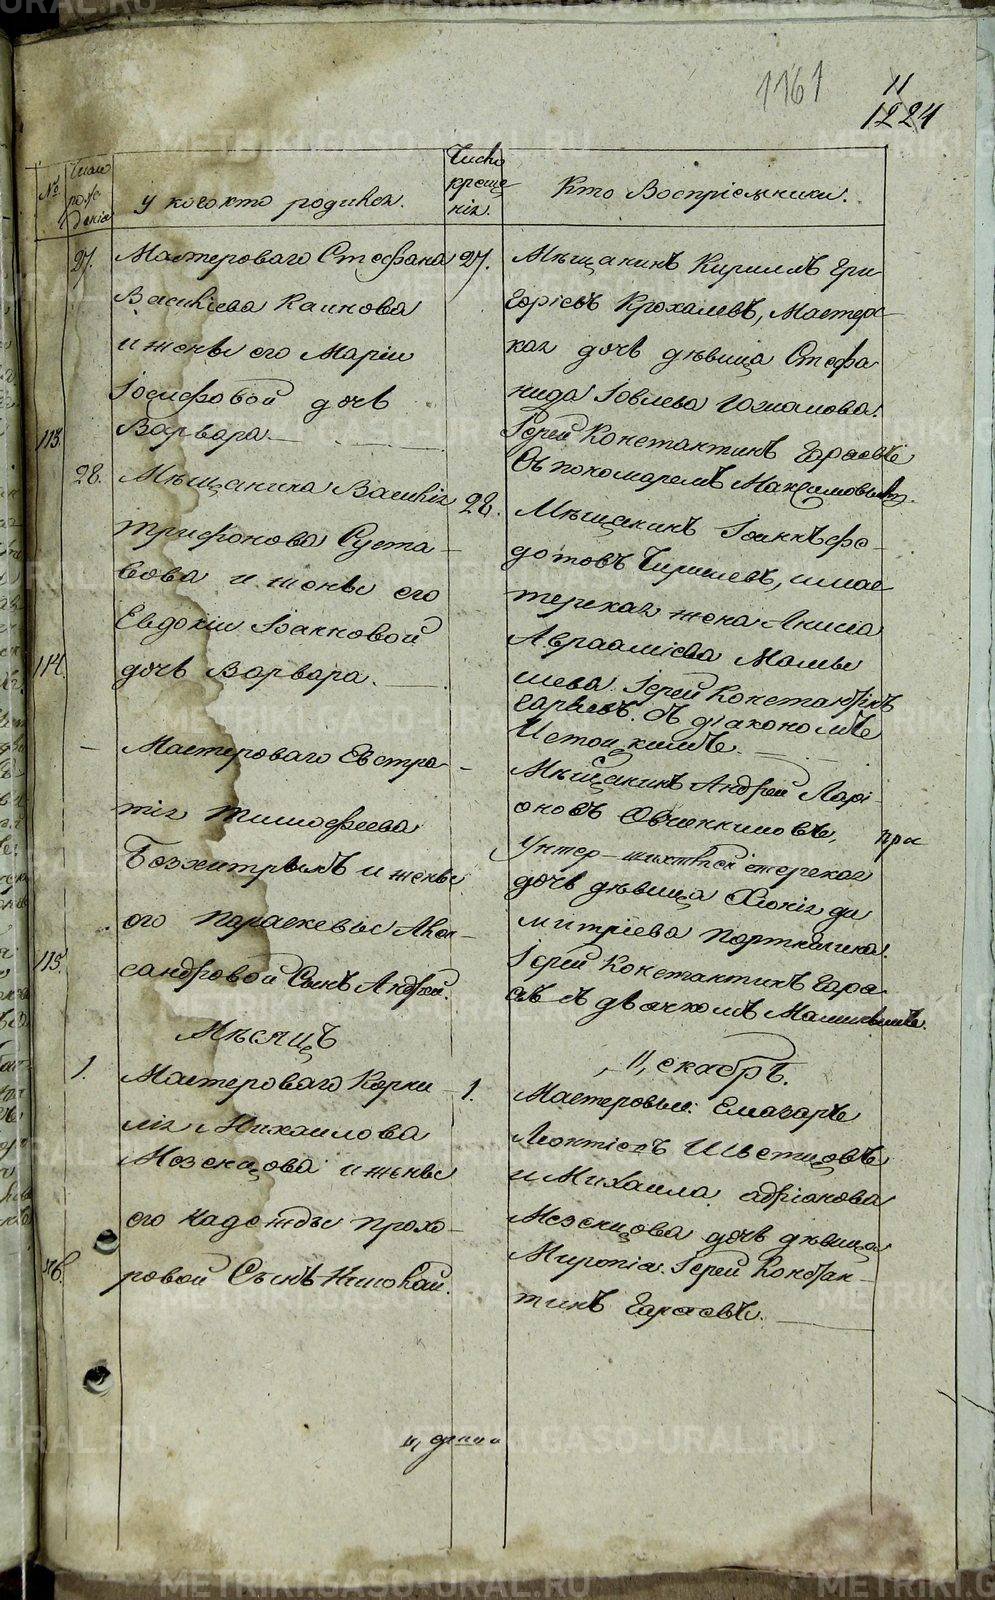 1161
11
1224
№
Число
рож
денія
у когокто родился.
Число
креще
нія.
Кто Воспріемники.
27.
Мастероваго Стефана
Васильева Каинова
и жены его Маріи
Іосифовой дочь
113.
Варвара.
27.
Мѣщанинъ Кириллъ Гри
горьевъ Крохалевъ, Мастерс
кая дочь дѣвица Стефа
нида Іовлева
Іерей Константинъ
Съ пономаремъ Максимовымъ.
28.
Мѣщанина Василія
Трифонова Суста
вова и жены его
Евдокіи Іванновой
114.
дочь Варвара.
28.
Мѣщанинъ Іоаннъ Фе
дотовъ имас
терская жена Анисіа
Аврааміева Малы
шева. Іерей Константінъ
Съ діакономъ
Истоцкимъ.
Мастероваго Евстра
тія Тимофеева
Безхитрыхъ и жены
его Параскевы Алек
115.
сандровой Сынъ Андрей.
Мѣщанинъ Андрей Ларі
оновъ Овчинниковъ, при
Унтер-шихтмейстерская
дочь дѣвица Хіонія Ди
митріева Портнягина.
Іерей Константинъ
съ дьячкомъ
Мѣсяцъ
Декабрь.
1.
Мастероваго Корни
лія Михаилова
Мезенцова и жены
его Надежды Прохо
116.
ровой Сынъ Николай.
1.
Мастеровый: Елиазаръ
Леонтіевъ Шветцовъ
и Михаила Адріанова
Мезенцова дочь дѣвица
Миропія. Іерей Констан
тинъ